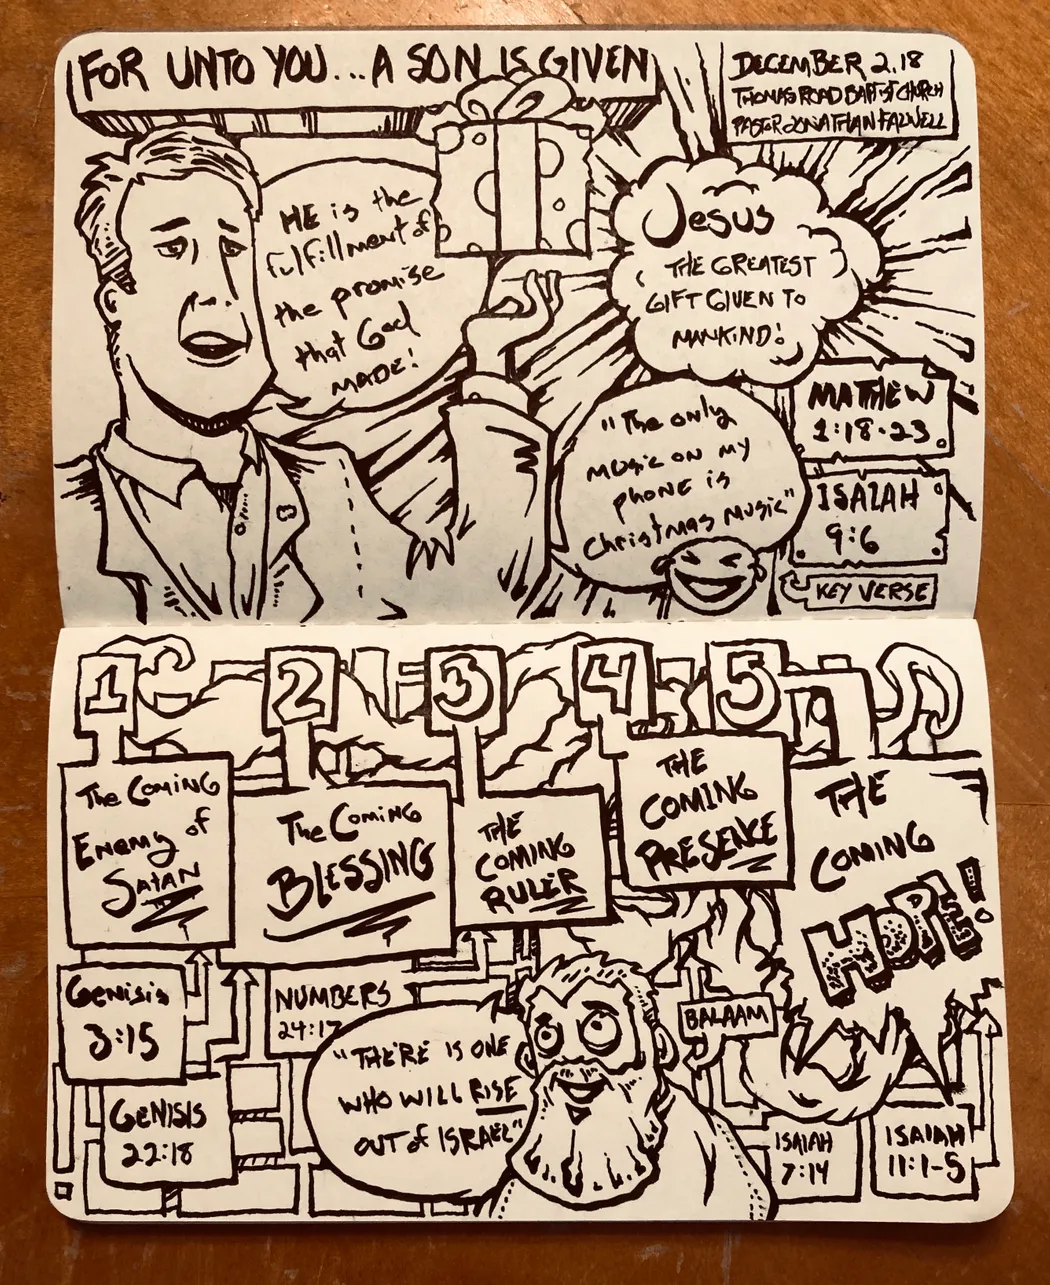 FOR UNTO YOU...A SON IS GIVEN
DECEMBER 2.18
THOMAS ROAD BAPTIST CHURCH
PASTOR JONATHAN FALWELL
HE is the
fulfillment of
the promise
that God
MADE!
Jesus
THE GREATEST
GIFT GIVEN TO
MANKIND!
MATTHEW
1:18-23
"The only
music on my
phone is
Christmas music"
ISAIAH
9:6
KEY VERSE
1
2
3
4
5
The Coming
Enemy of
Satan
The Coming
BLESSING
THE
COMING
RULER
THE
COMING
PRESENCE
THE
COMING
HOPE!
Genisis
3:15
NUMBERS
24:17
BALAAM
"THERE IS ONE
WHO WILL RISE
OUT of ISRAEL"
GENISIS
22:18
ISAIAH
7:14
ISAIAH
11:1-5